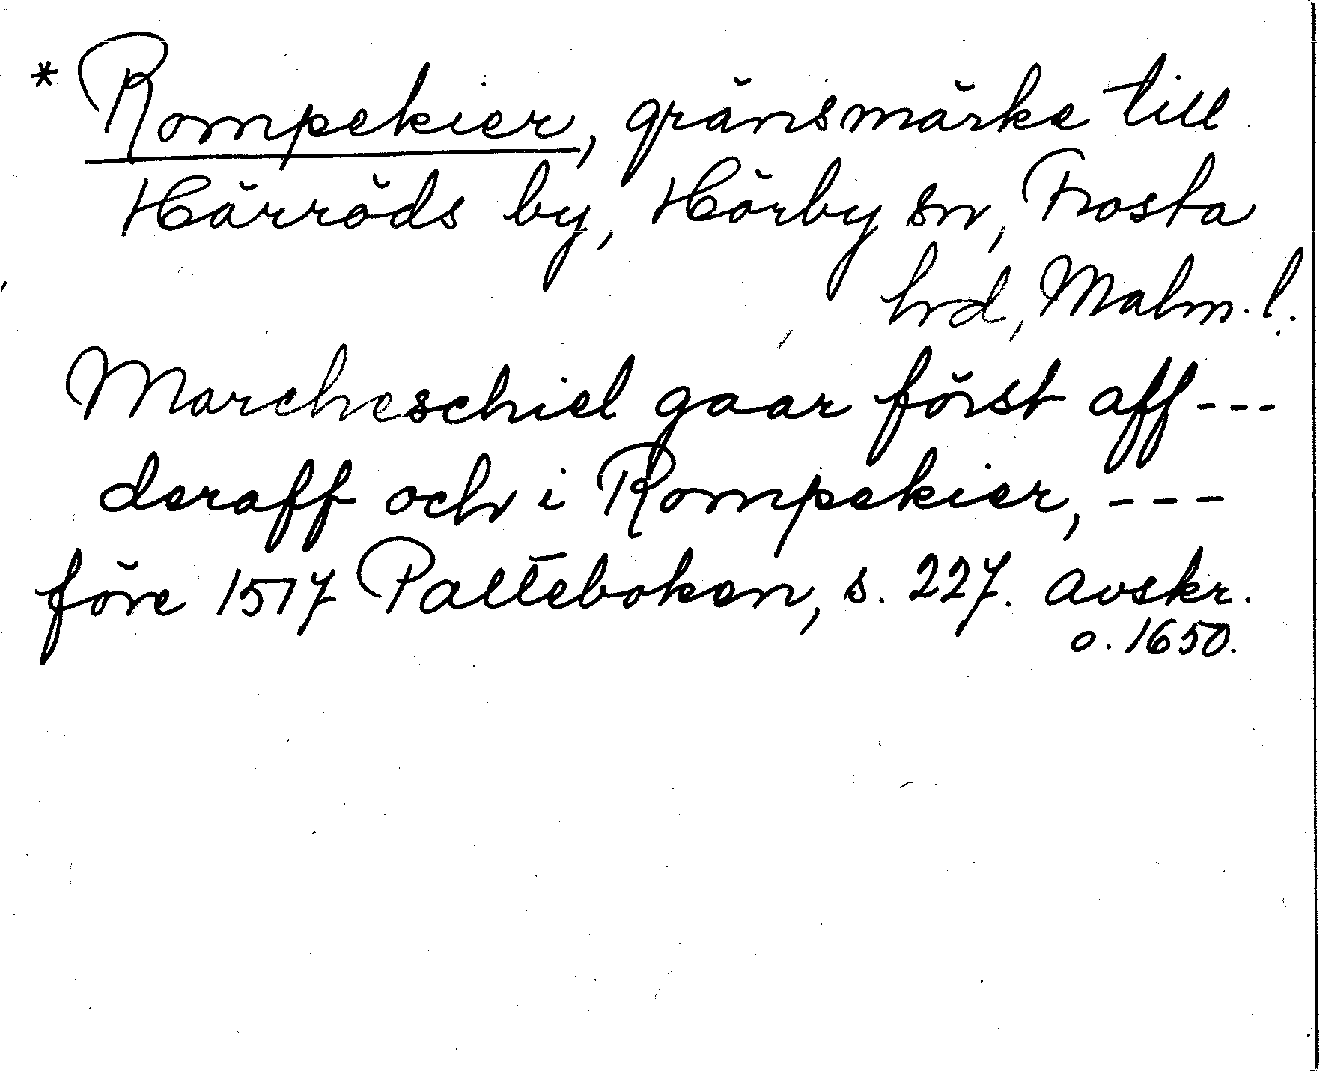 * Rompekier, gränsmärke till
Härröds by, Hörby sn, Frosta
hrd, Malm. l.
Marcheschiel gaar först aff ---
deraff och i Rompekier, ---
före 1517 Palteboken, s. 227. Avskr.
o. 1650.